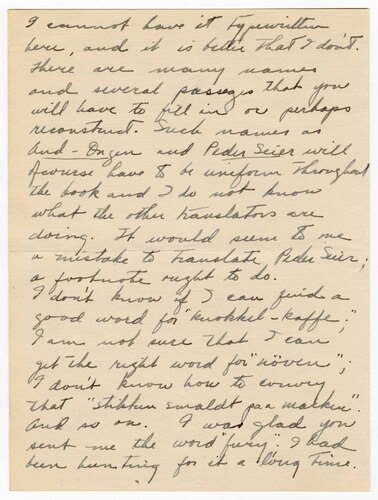 I cannot have it typewritten
here, and it is better that I don't.
There are many names
and several passages that you
will have to fill in or perhaps
reconstruct. Such names as
And-Ongen and Peder Seier will
of course have to be uniform throughout
the book and I do not know
what the other translators are
doing. It would seem to me
a mistake to translate Peder Seier;
a footnote ought to do.
I don't know if I can find a
good word for "knokkel-kaffe";
I am not sure that I can
get the right word for "növen";
I don't know how to convey
that "stikken smaldt paa marken".
And so on. I was glad you
sent me the word "fury". I had
been hunting for it a long time.